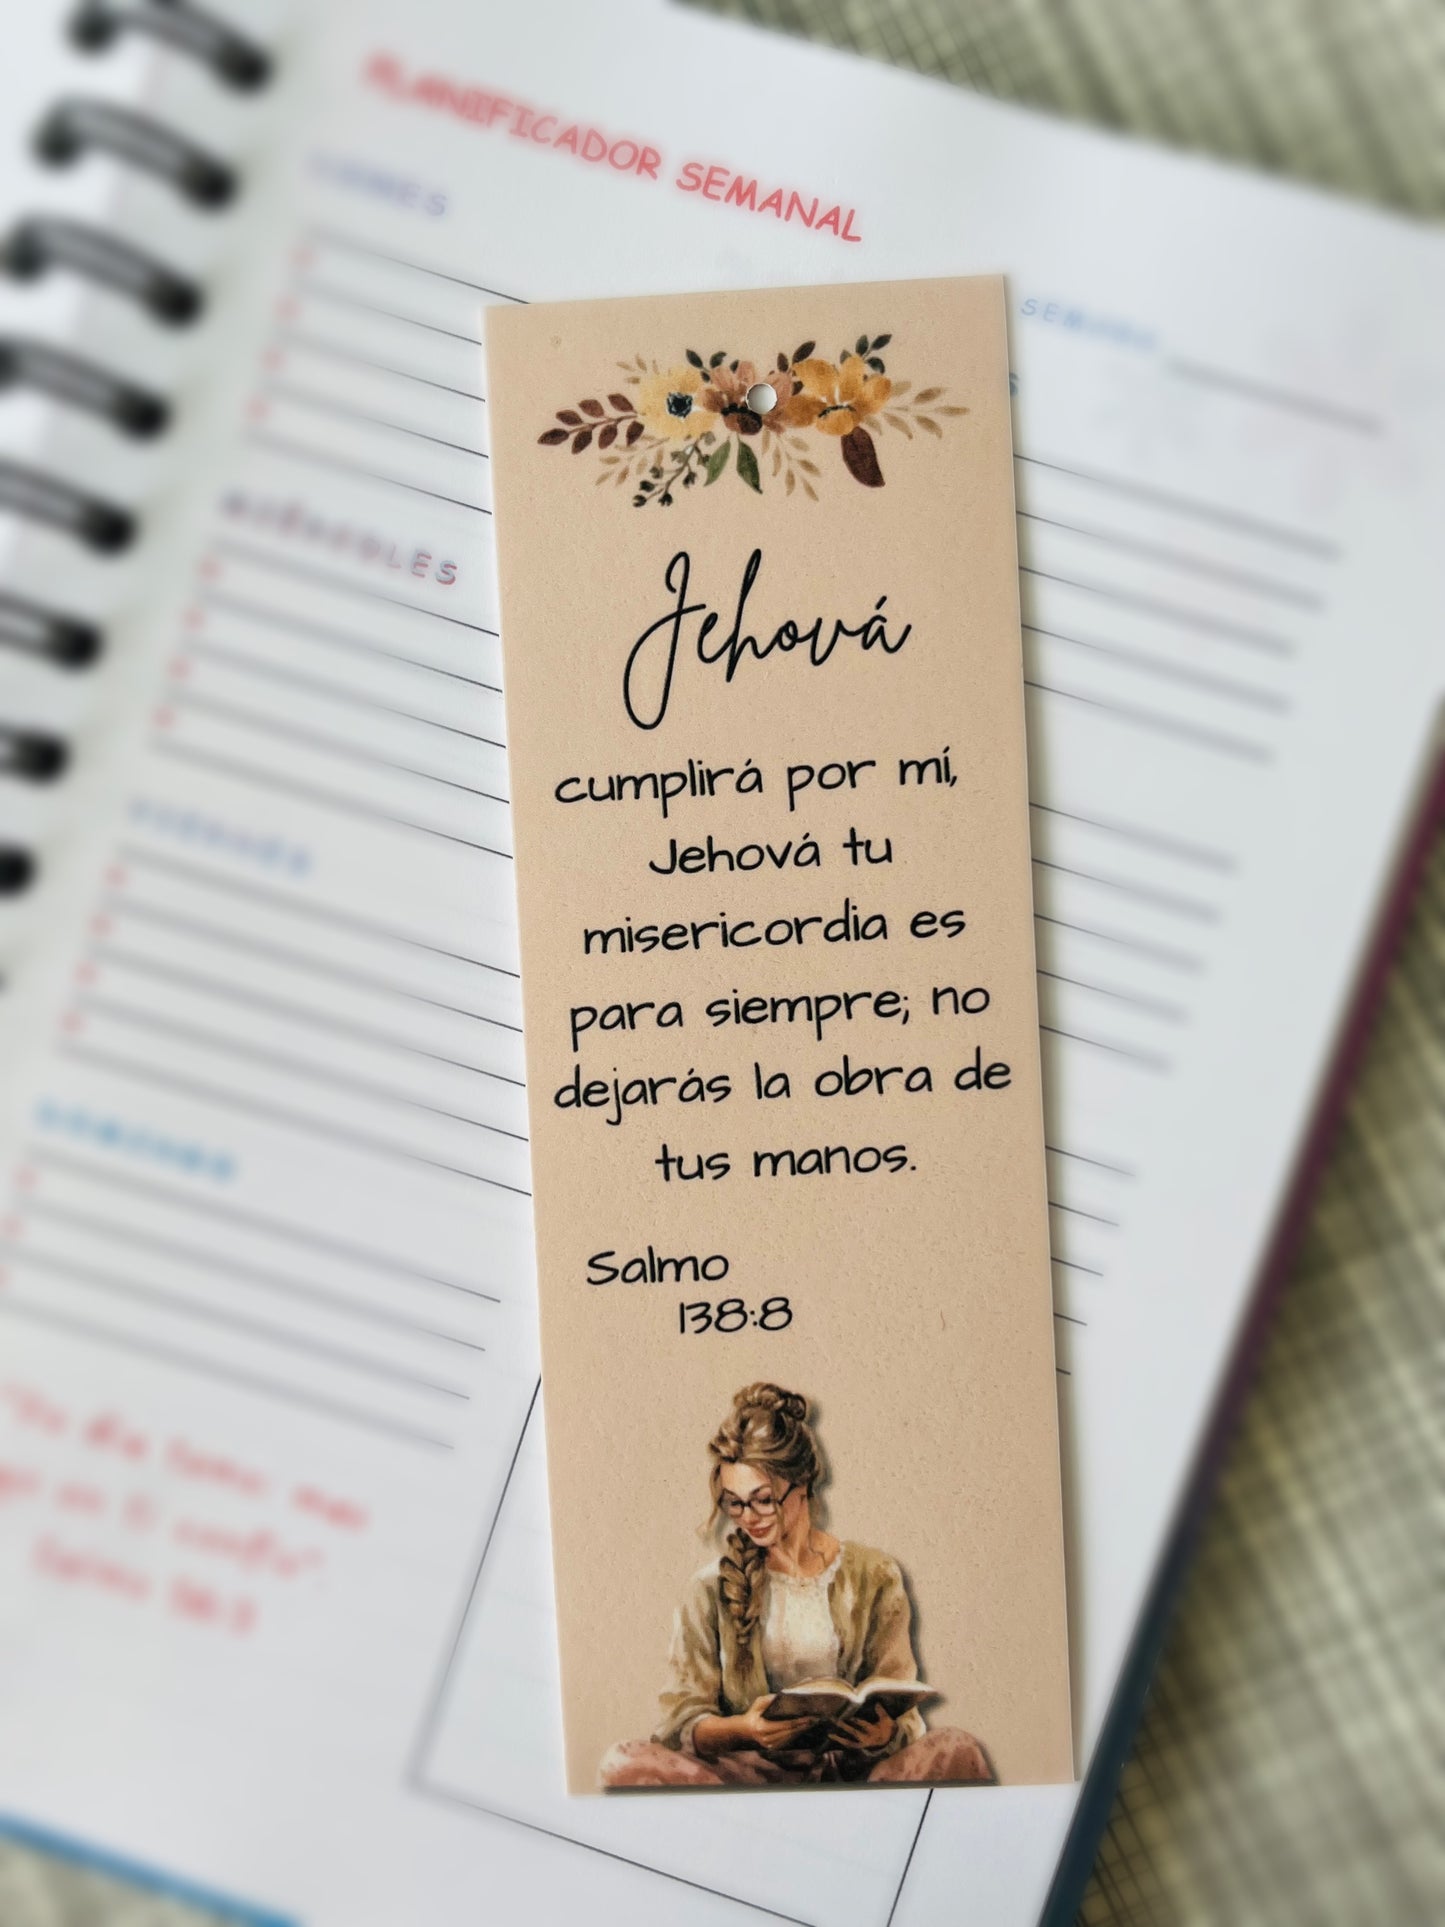 PLANIFICADOR SEMANAL
SEMANA
MIÉRCOLES
Jehová
cumplirá por mí,
Jehová tu
misericordia es
para siempre; no
dejarás la obra de
tus manos.
Salmo
138:8